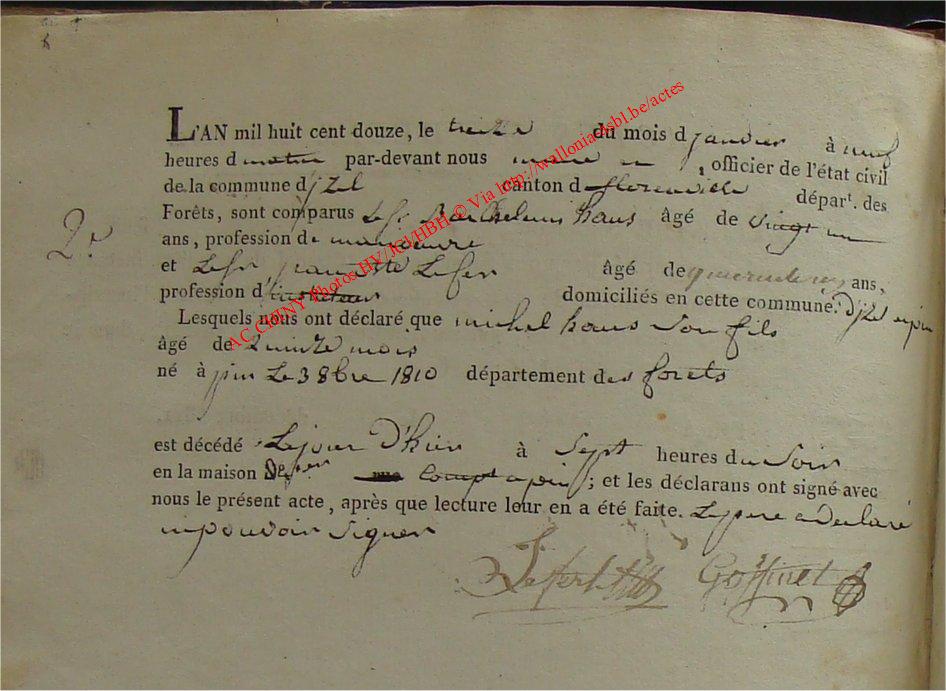 L'AN mil huit cent douze, le treize du mois d janvier à neuf
heures d matin par-devant nous maire, officier de l'état civil
de la commune d'jzel canton d florenville départ. des
Forêts, sont comparus Le Sr Barthelemi haus âgé de vingt un
2e
ans, profession de manoeuvre
et Le Sr jean Lefer âgé de ans,
profession d' domiciliés en cette commune. D'jzel
Lesquels nous ont déclaré que michel haus Son fils
âgé de quinze mois
né à pin Le 3 8bre 1810 département des forets
est décédé Le jour D'hier à Sept heures du Soir
en la maison De ; et les déclarans ont signé avec
nous le présent acte, après que lecture leur en a été faite. Le pere a Declaré
ne pouvoir Signer
Goffinet
AC CHINY Photos HV/JCI/HBH © Via http://wallonia.asbl.be/actes